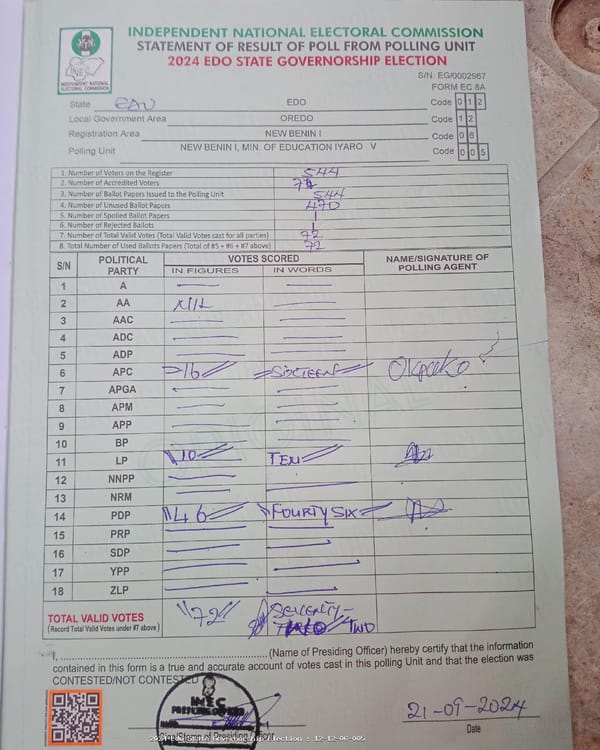 INDEPENDENT NATIONAL ELECTORAL COMMISSION
STATEMENT OF RESULT OF POLL FROM POLLING UNIT
2024 EDO STATE GOVERNORSHIP ELECTION
INEC
INDEPENDENT NATIONAL ELECTORAL COMMISSION
S/N. EG/0002967
FORM EC 8A
State EDO Code 0 1 2
Local Government Area OREDO Code 1 2
Registration Area NEW BENIN I Code 0 6
Polling Unit NEW BENIN I, MIN. OF EDUCATION IYARO V Code 0 0 5
1. Number of Voters on the Register 544
2. Number of Accredited Voters
3. Number of Ballot Papers Issued to the Polling Unit 544
4. Number of Unused Ballot Papers 470
5. Number of Spoiled Ballot Papers
6. Number of Rejected Ballots
7. Number of Total Valid Votes (Total Valid Votes cast for all parties) 72
8. Total Number of Used Ballots Papers (Total of #5 + #6 + #7 above) 72
S/N POLITICAL PARTY VOTES SCORED NAME/SIGNATURE OF POLLING AGENT
IN FIGURES IN WORDS
1 A
2 AA NIL
3 AAC
4 ADC
5 ADP
6 APC 16 SIXTEEN Okpako
7 APGA
8 APM
9 APP
10 BP
11 LP 10 TEN
12 NNPP
13 NRM
14 PDP 46 FOURTY SIX
15 PRP
16 SDP
17 YPP
18 ZLP
TOTAL VALID VOTES 72 SEVENTY-
(Record Total Valid Votes under #7 above) TWO
I, (Name of Presiding Officer) hereby certify that the information
contained in this form is a true and accurate account of votes cast in this polling Unit and that the election was
CONTESTED/NOT CONTESTED
INEC
PRESIDING OFFICER
21-09-2024
Date
2024 Edo State Governorship Election : 12-12-06-005